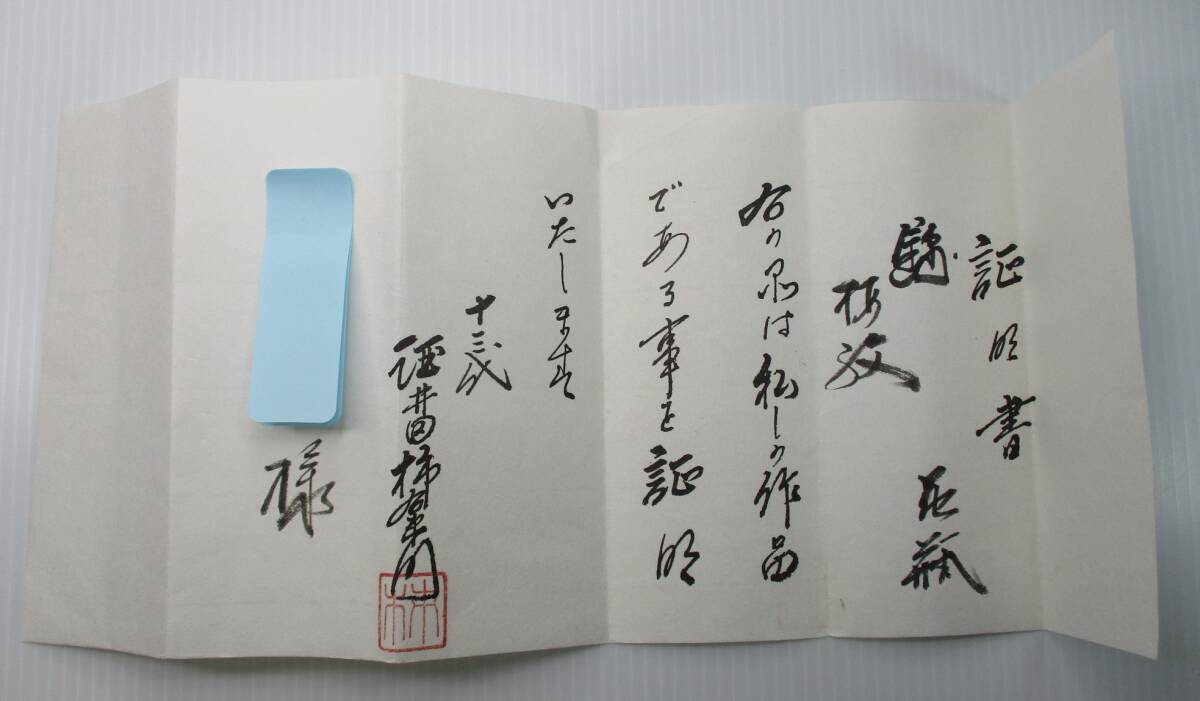 証明書
花瓶
右の品は私しの作品
である事を証明
いたします
十三代
酒井田柿右衛門
様